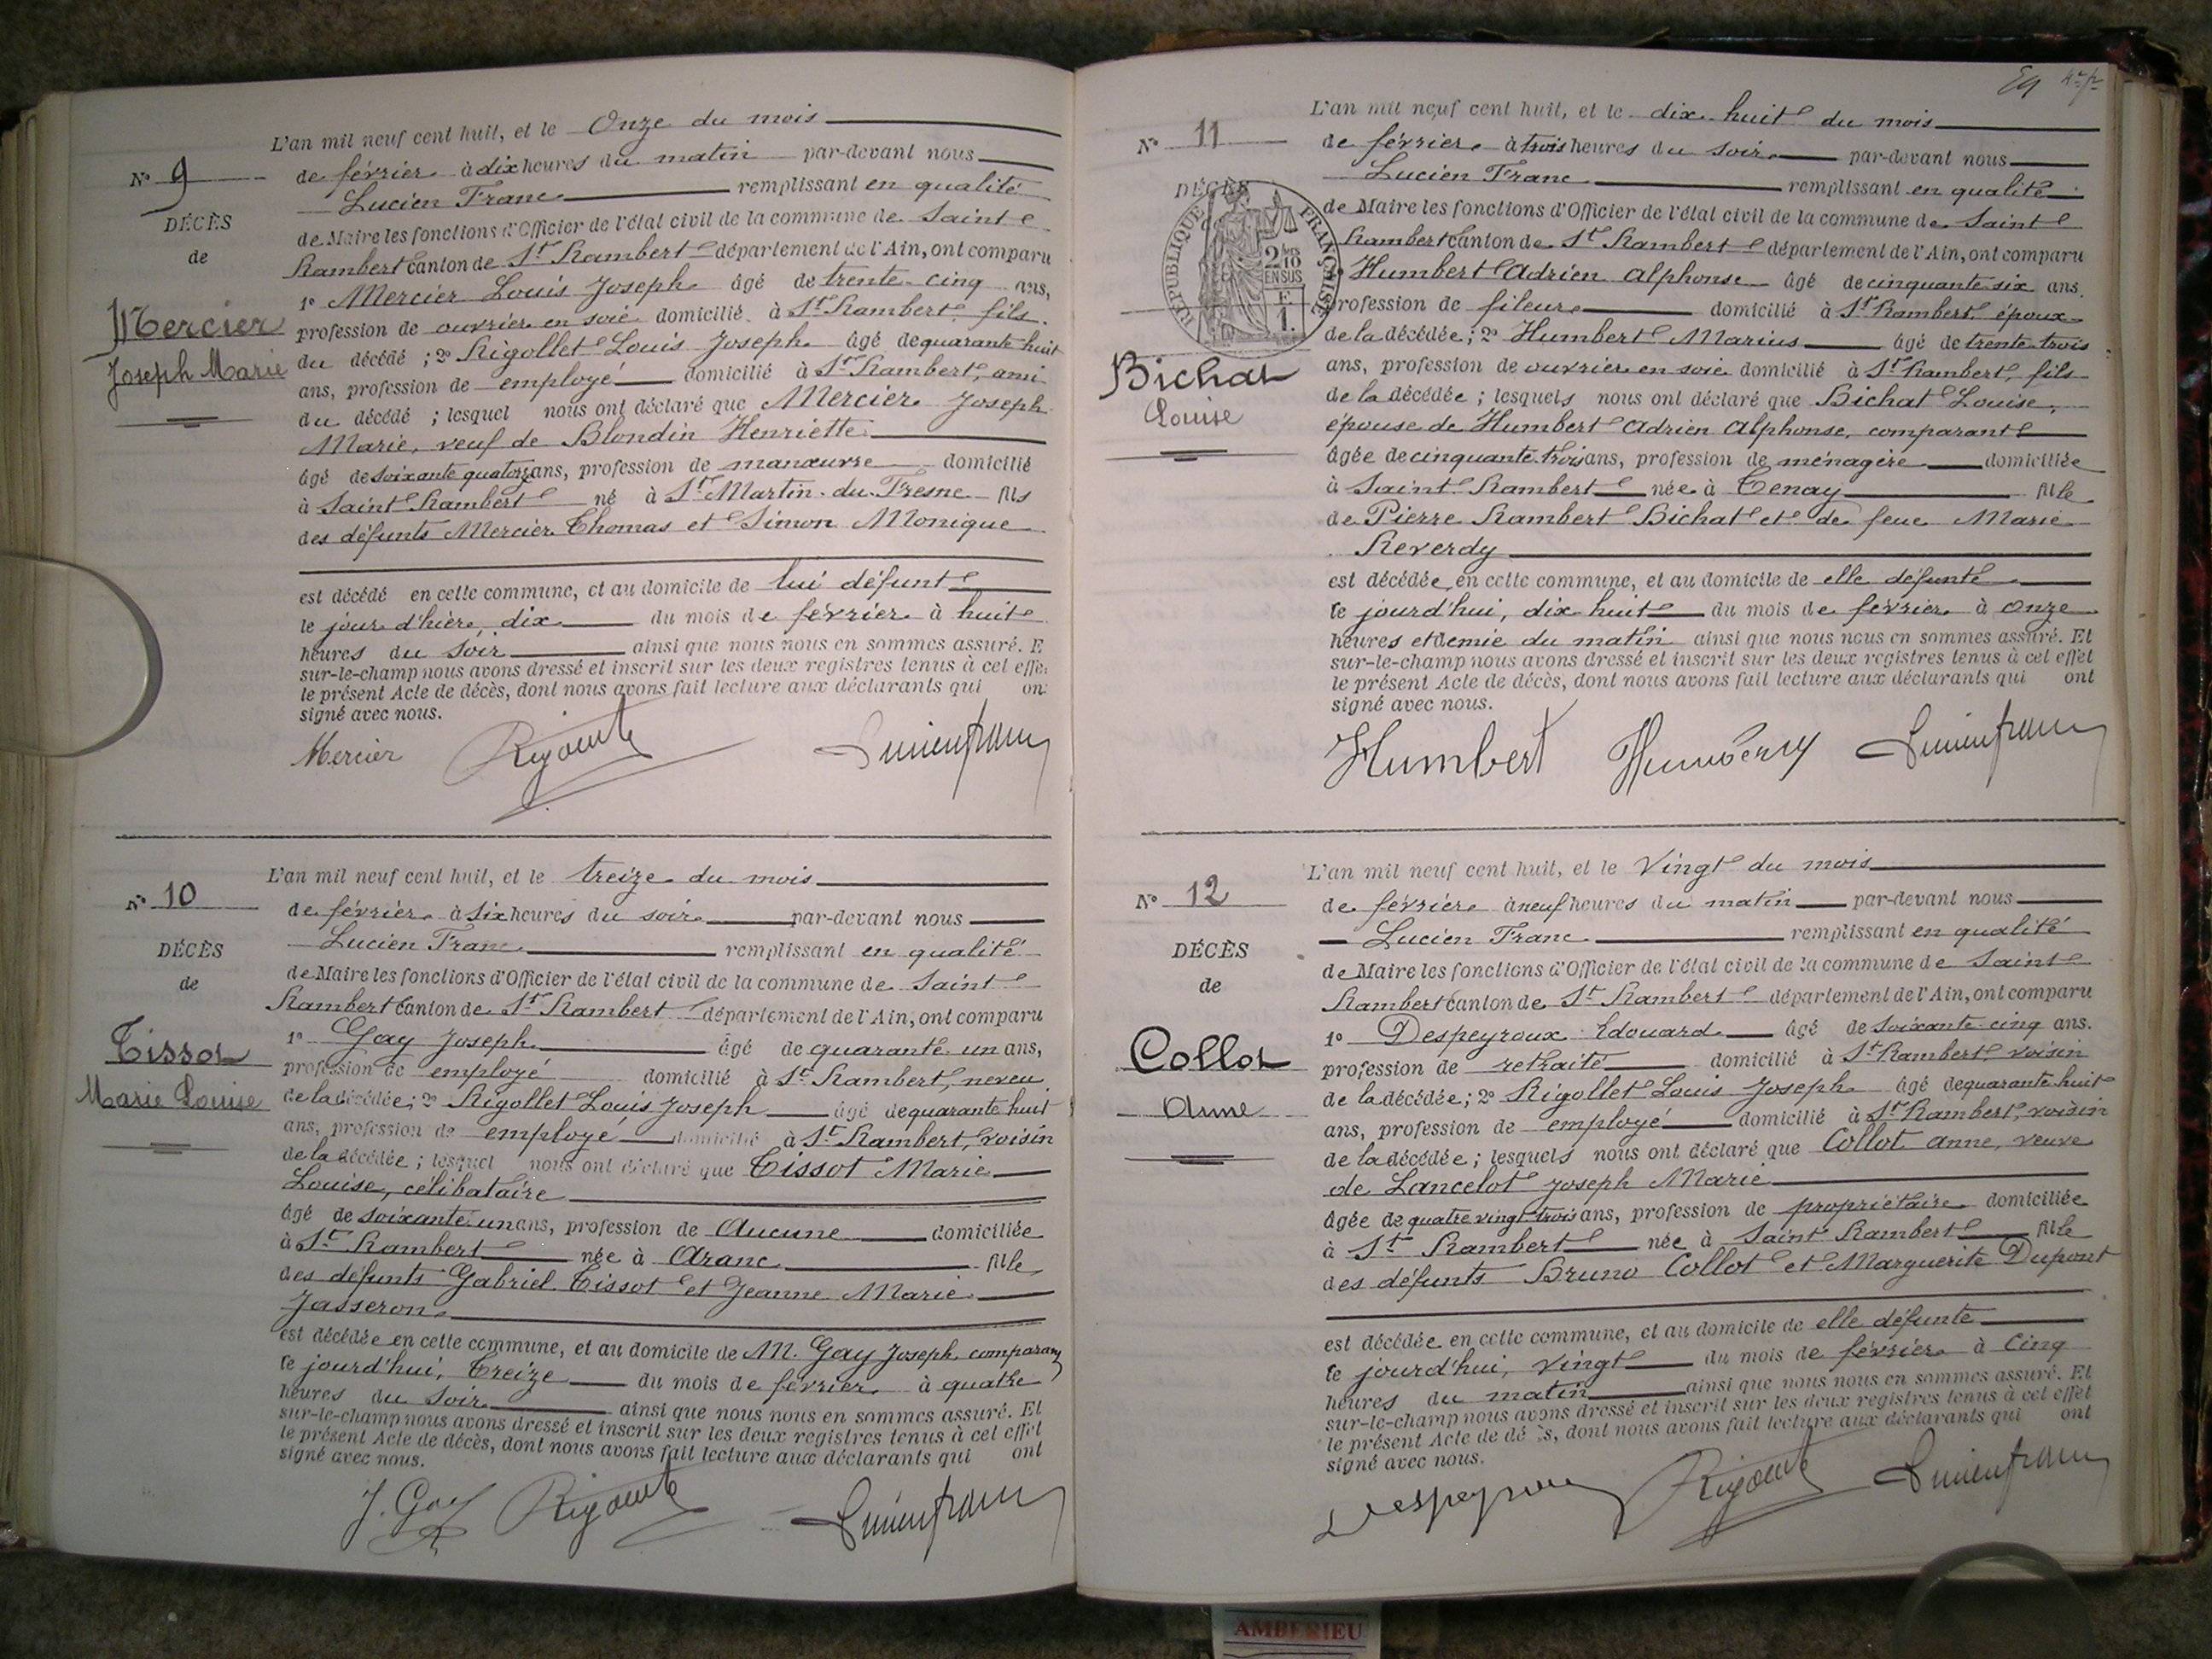 L'an mil neuf cent huit, et le Onze du mois
N° 9
de février à dix heures du matin par-devant nous
Lucien Franc remplissant en qualité
DÉCÈS
de Maire les fonctions d'Officier de l'état civil de la commune de Saint
de
Rambert canton de St Rambert département de l'Ain, ont comparu
1° Mercier Louis Joseph âgé de trente-cinq ans,
Mercier
profession de ouvrier en soie domicilié à St Rambert, fils
Joseph Marie
du décédé ; 2° Rigollet Louis Joseph âgé de quarante huit
ans, profession de employé domicilié à St Rambert, ami
du décédé ; lesquel nous ont déclaré que Mercier Joseph
Marie, veuf de Blondin Henriette
âgé de soixante quatorze ans, profession de manœuvre domicilié
à Saint Rambert né à St Martin-du-Fresne fils
des défunts Mercier Thomas et Simon Monique
est décédé en cette commune, et au domicile de lui défunt
le jour d'hier, dix du mois de février à huit
heures du soir ainsi que nous nous en sommes assuré. E
sur-le-champ nous avons dressé et inscrit sur les deux registres tenus à cet effe
le présent Acte de décès, dont nous avons fait lecture aux déclarants qui on
signé avec nous.
Mercier Rigollet Lucien franc
L'an mil neuf cent huit, et le treize du mois
N° 10
de février à six heures du soir par-devant nous
Lucien Franc remplissant en qualité
DÉCÈS
de Maire les fonctions d'Officier de l'état civil de la commune de Saint
de
Rambert canton de St Rambert département de l'Ain, ont comparu
1° Gay Joseph âgé de quarante-un ans,
Tissot
profession de employé domicilié à St Rambert, neveu
Marie Louise
de la décédée ; 2° Rigollet Louis Joseph âgé de quarante huit
ans, profession de employé domicilié à St Rambert, voisin
de la décédée ; lesquel nous ont déclaré que Tissot Marie
Louise, célibataire
âgé de soixante-un ans, profession de Aucune domiciliée
à St Rambert née à Aranc fille
des défunts Gabriel Tissot et Jeanne Marie
Jasseron
est décédée en cette commune, et au domicile de M. Gay Joseph comparant
le jourd'hui, Treize du mois de février à quatre
heures du soir ainsi que nous nous en sommes assuré. Et
sur-le-champ nous avons dressé et inscrit sur les deux registres tenus à cet effet
le présent Acte de décès, dont nous avons fait lecture aux déclarants qui ont
signé avec nous.
J. Gay Rigollet Lucien franc
59
L'an mil neuf cent huit, et le dix-huit du mois
N° 11
de février à trois heures du soir par-devant nous
Lucien Franc remplissant en qualité
DÉCÈS
de Maire les fonctions d'Officier de l'état civil de la commune de Saint
RÉPUBLIQUE FRANÇAISE
2/10 EN SUS
Rambert canton de St Rambert département de l'Ain, ont comparu
Humbert Adrien Alphonse âgé de cinquante-six ans.
profession de fileur domicilié à St Rambert époux
de la décédée ; 2° Humbert Marius âgé de trente-trois
Bichat
Louise
ans, profession de ouvrier en soie domicilié à St Rambert, fils
de la décédée ; lesquels nous ont déclaré que Bichat Louise,
épouse de Humbert Adrien Alphonse, comparant
âgée de cinquante-trois ans, profession de ménagère domiciliée
à Saint Rambert née à Tenay fille
de Pierre Rambert Bichat et de feue Marie
Reverdy
est décédée en cette commune, et au domicile de elle défunte
le jourd'hui, dix-huit du mois de février à onze
heures et demie du matin ainsi que nous nous en sommes assuré. Et
sur-le-champ nous avons dressé et inscrit sur les deux registres tenus à cet effet
le présent Acte de décès, dont nous avons fait lecture aux déclarants qui ont
signé avec nous.
Humbert Humbert Lucien franc
L'an mil neuf cent huit, et le Vingt du mois
N° 12
de février à neuf heures du matin par-devant nous
Lucien Franc remplissant en qualité
DÉCÈS
de Maire les fonctions d'Officier de l'état civil de la commune de Saint
de
Rambert canton de St Rambert département de l'Ain, ont comparu
1° Despeyroux Edouard âgé de soixante-cinq ans.
Collot
profession de retraité domicilié à St Rambert voisin
Anne
de la décédée ; 2° Rigollet Louis Joseph âgé de quarante-huit
ans, profession de employé domicilié à St Rambert, voisin
de la décédée ; lesquels nous ont déclaré que Collot Anne, veuve
de Lancelot Joseph Marie
âgée de quatre vingt-trois ans, profession de propriétaire domiciliée
à St Rambert née à Saint Rambert fille
des défunts Bruno Collot et Marguerite Dupont
est décédée en cette commune, et au domicile de elle défunte
le jourd'hui, vingt du mois de février à cinq
heures du matin ainsi que nous nous en sommes assuré. Et
sur-le-champ nous avons dressé et inscrit sur les deux registres tenus à cet effet
le présent Acte de dé s, dont nous avons fait lecture aux déclarants qui ont
signé avec nous.
Despeyroux Rigollet Lucien franc
AMBERIEU